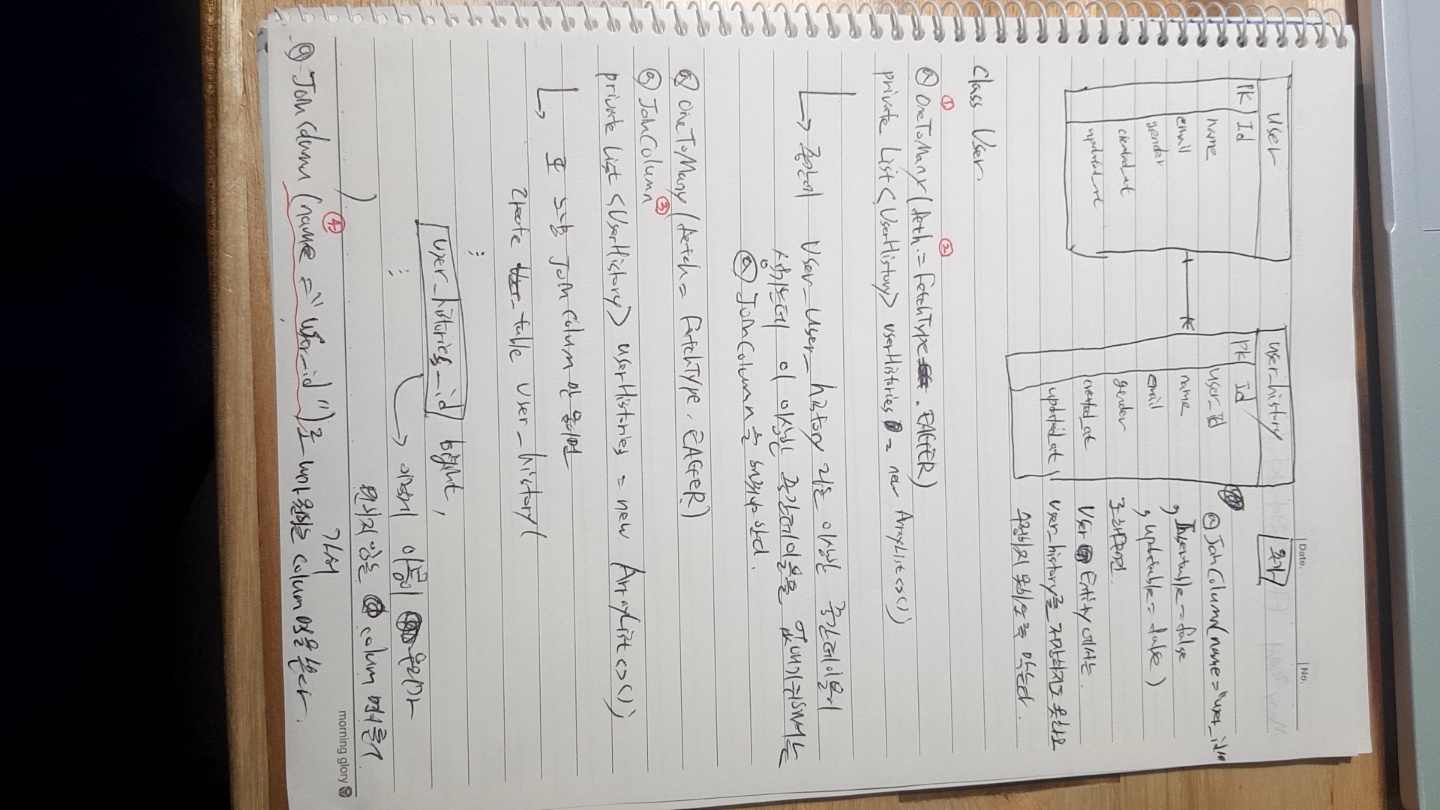 Date.
No.
추가
User
PK Id
name
email
gender
created_at
updated_at
user_history
PK Id
user_id
name
email
gender
created_at
updated_at
@JoinColumn(name="user_id"
, Insertable=false
, updatable=false)
로 하면
User Entity에서는
user_history를 저장하지도 못하고
수정하지 못하도록 막는다.
Class User.
① ②
@ OneToMany(fetch = FetchType. EAGER)
private List<UserHistory> userHistories = new ArrayList<>();
↳ 중간에 User_user_history 라는 이상한 중간테이블이
생기는데 이 이상한 중간테이블을 없애기 위해서는
@ JoinColumn을 해줘야 한다.
@ OneToMany(fetch = FetchType. EAGER)
@ JoinColumn ③
private List<UserHistory> userHistories = new ArrayList<>();
↳ 또 느낌 JoinColumn 만 붙이면
create table user_history(
⋮
user_histories_id bigint,
⋮
→ 이상하게 이름이 올라가
원하지 않은 column 명이 들어
)
가서
④
@ JoinColumn (name = "user_id")로 내가 원하는 column 명을 쓴다.
morning glory